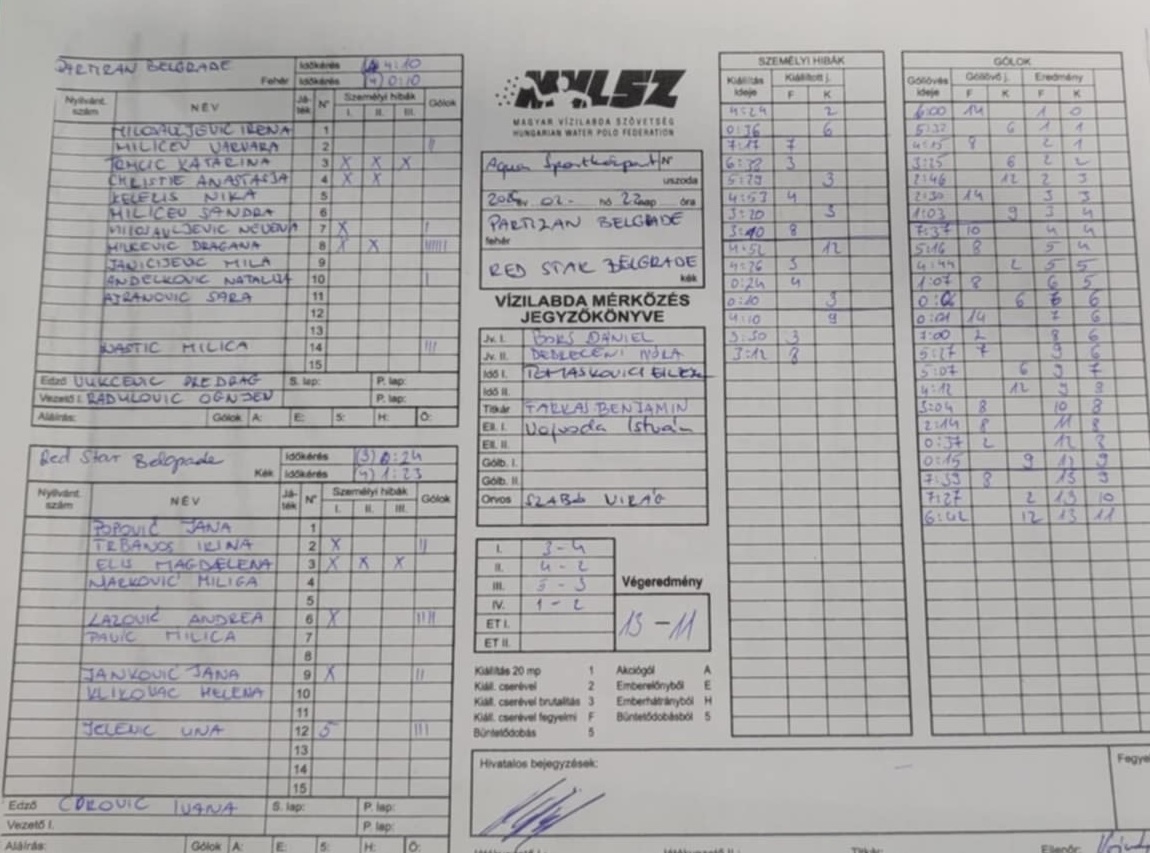 PARTIZAN BELGRADE
Fehér
Időkérés 4:10
Időkérés (4) 0:10
Nyilvánt. szám NÉV Játék N° Személyi hibák Gólok
I. II. III.
MILOSAVLJEVIC IRENA 1
MILICEV VARVARA 2 II
TOMCIC KATARINA 3 X X X
CHRISTIE ANASTASJA 4 X X
NIKA 5
MILICEV SANDRA 6
MILOSAVLJEVIC 7 X I
MILICEVIC DRAGANA 8 X X IIIIII
JANICIJEVIC MILA 9
ANDELKOVIC NATALIJA 10 I
AJRANOVIC SARA 11
12
13
NASTIC MILICA 14 III
15
Edző VUKCEVIC PREDRAG S. lap: P. lap:
Vezető I. RADULOVIC OGNJEN P. lap:
Aláírás: Gólok A: E: 5: H: Ö:
Red Star Belgrade
Kék
Időkérés (3) 0:24
Időkérés (4) 1:23
Nyilvánt. szám NÉV Játék N° Személyi hibák Gólok
I. II. III.
POPOVIĆ JANA 1
TRBANOS IRINA 2 X II
ELIS MAGDALENA 3 X X X
MARKOVIĆ MILIGA 4
5
LAZOVIĆ ANDREA 6 X IIII
PAVIĆ MILICA 7
8
JANKOVIĆ JANA 9 X II
KLIKOVAC HELENA 10
11
JELENIC UNA 12 5 III
13
14
15
Edző COROVIC IVANA S. lap: P. lap:
Vezető I. P. lap:
Aláírás: Gólok A: E: 5: H: Ö:
MVLSZ
MAGYAR VÍZILABDA SZÖVETSÉG
HUNGARIAN WATER POLO FEDERATION
Aqua Sportközpont
uszoda
év 02. hó 22 nap óra
PARTIZAN BELGRADE
fehér
RED STAR BELGRADE
kék
VÍZILABDA MÉRKŐZÉS
JEGYZŐKÖNYVE
Jv. I. BORS DÁNIEL
Jv. II. DEBRECENI NÓRA
Idő I. TOMASKOVICS
Idő II.
Titkár FARKAS BENJAMIN
Ell. I. Vojvoda István
Ell. II.
Gólb. I.
Gólb. II.
Orvos SZABÓ VIRÁG
I. 3-4
II. 4-2
III. 5-3
IV. 1-2
ET I.
ET II.
Végeredmény
13-11
Kiállítás 20 mp 1 Akciógól A
Kiáll. cserével 2 Emberelőnyből E
Kiáll. cserével brutalitás 3 Emberhátrányból H
Kiáll. cserével fegyelmi F Büntetődobásból 5
Büntetődobás 5
SZEMÉLYI HIBÁK
Kiállítás ideje Kiállított j.
F K
4:24 2
0:36 6
7:17 7
6:28 3
5:29 3
4:53 4
3:20 3
3:10 8
4:52 12
4:26 3
0:24 4
0:10 3
4:10 9
3:30 3
3:12 8
GÓLOK
Góllövés ideje Góllövő j. Eredmény
F K F K
6:00 14 1 0
5:32 6 1 1
4:15 8 2 1
3:25 6 2 2
2:46 12 2 3
2:30 14 3 3
1:03 9 3 4
7:37 10 4 4
5:16 8 5 4
4:44 2 5 5
1:07 8 6 5
0:06 6 6 6
0:01 14 7 6
7:00 2 8 6
5:27 7 9 6
5:07 6 9 7
4:12 12 9 8
3:04 8 10 8
2:14 8 11 8
0:37 2 12 8
0:15 9 12 9
7:39 8 13 9
7:27 2 13 10
6:42 12 13 11
Hivatalos bejegyzések:
Titkár:
Ellenőr: